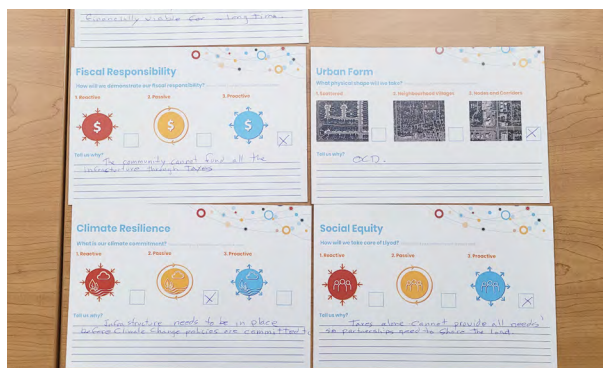 Financially viable for a long time.
Fiscal Responsibility
How will we demonstrate our fiscal responsibility?
1. Reactive
2. Passive
3. Proactive
Tell us why?
The community cannot fund all the
infrastructure through Taxes
Urban Form
What physical shape will we take?
1. Scattered
2. Neighbourhood Villages
3. Nodes and Corridors
Tell us why?
OCD.
Climate Resilience
What is our climate commitment?
1. Reactive
2. Passive
3. Proactive
Tell us why?
Infrastructure needs to be in place
before Climate Change policies are committed to
Social Equity
How will we take care of
1. Reactive
2. Passive
3. Proactive
Tell us why?
Taxes alone cannot provide all needs
so partnerships need to share the load.